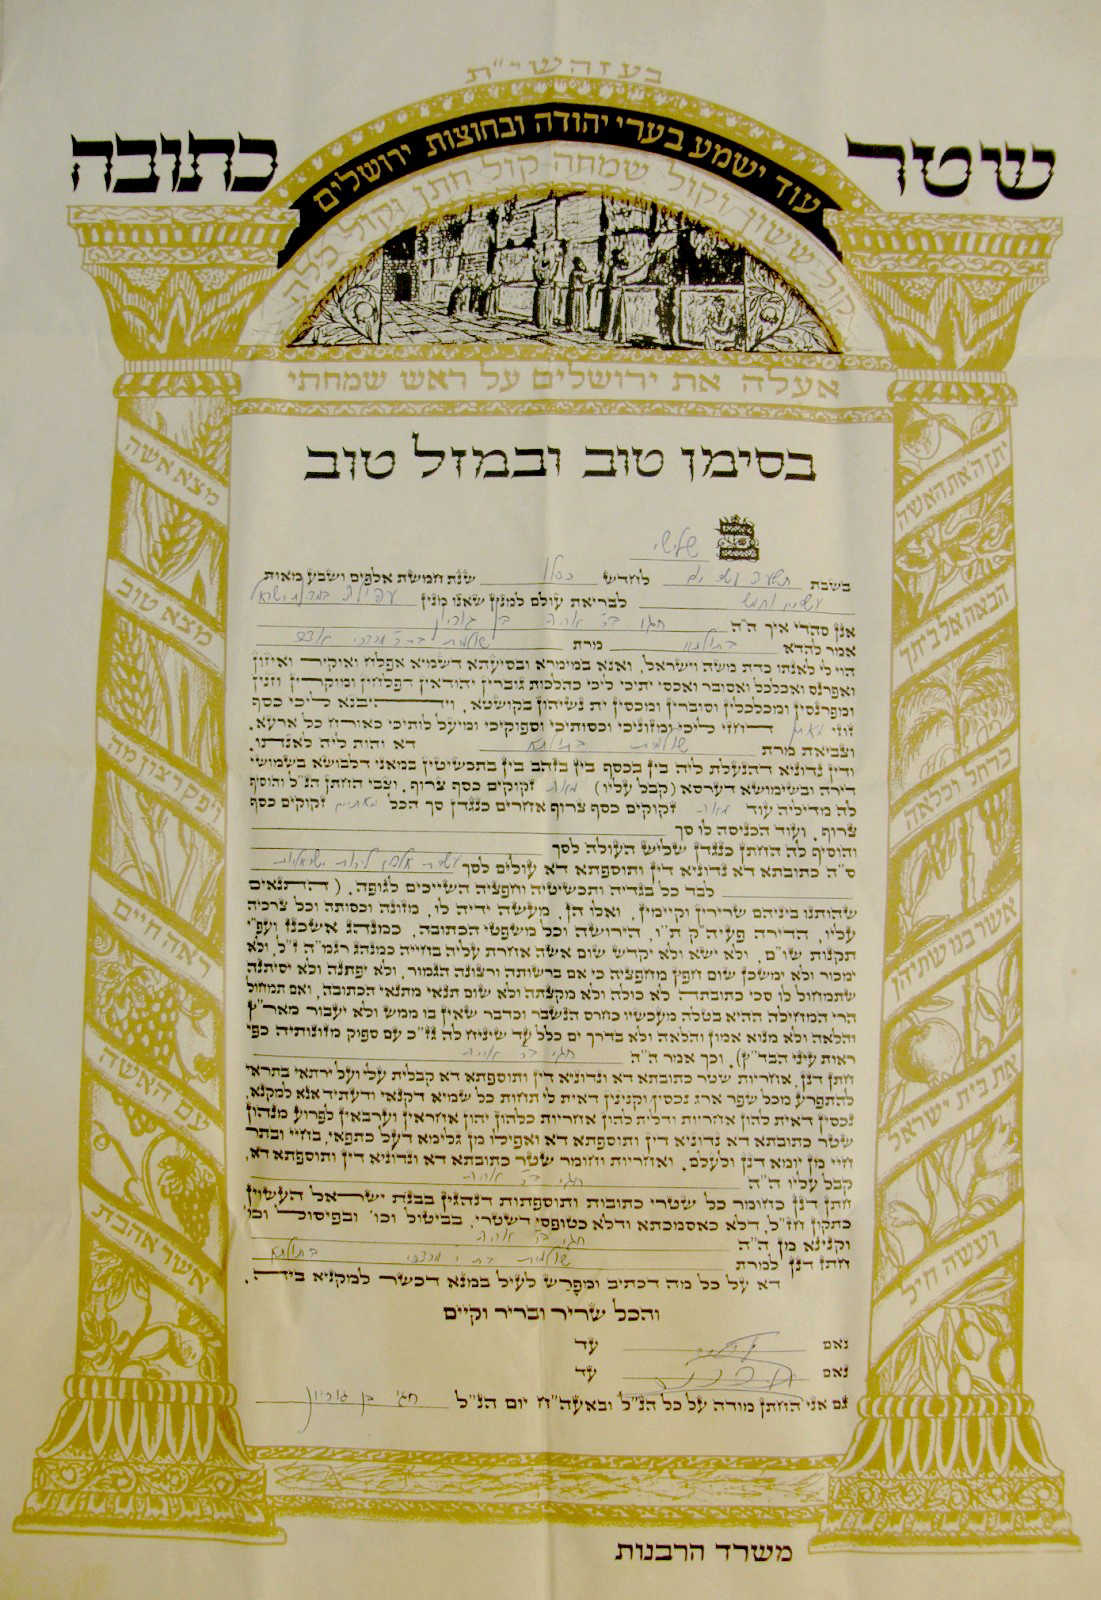 בעזהשי"ת
שטר כתובה
עוד ישמע בערי יהודה ובחוצות ירושלים
קול ששון וקול שמחה קול חתן וקול כלה
אעלה את ירושלים על ראש שמחתי
בסימן טוב ובמזל טוב
יתן ה' את האשה
הבאה אל ביתך
כרחל וכלאה
אשר בנו שתיהן
את בית ישראל
ועשה חיל
מצא אשה
מצא טוב
ויפק רצון מה'
ראה חיים
עם האשה
אשר אהבת
שלישי
בשבת לחדש כסלו שנת חמשת אלפים ושבע מאות
עשרים וחמש לבריאת עולם למנין שאנו מנין במדינת ישראל
אנן סהדי איך ה"ה חגי ב"ר אריה בן גוריון
אמר להדא בתולתא מרת שולמית בת ר' מרדכי
הוי לי לאנתו כדת משה וישראל, ואנא במימרא ובסיעתא דשמיא אפלח ואוקיר ואיזון
ואפרנס ואכלכל ואסובר ואכסי יתיכי ליכי כהלכות גוברין יהודאין דפלחין ומוקרין וזנין
ומפרנסין ומכלכלין וסוברין ומכסין ית נשיהון בקושטא, ויהיבנא ליכי כסף
זוזי מאתן דחזי ליכי ומזוניכי וכסותיכי וסיפוקיכי ומיעל לותיכי כאורח כל ארעא.
וצביאת מרת שולמית בתולתא דא והות ליה לאנתו,
ודין נדוניא דהנעלת ליה בין בכסף בין בזהב בין בתכשיטין במאני דלבושא בשמושי
דירה ובשימושא דערסא (קבל עליו) מאה זקוקים כסף צרוף, וצבי החתן הנ"ל והוסיף
לה מדיליה עוד מאה זקוקים כסף צרוף אחרים כנגדן סך הכל מאתיים זקוקים כסף
צרוף, ועוד הכניסה לו סך
והוסיף לה החתן כנגדן שליש העולה לסך
ס"ה כתובתא דא נדוניא דין ותוספתא דא עולים לסך עשרת אלפים לירות ישראליות
לבד כל בגדיה ותכשיטיה וחפציה השייכים לגופה. (והתנאים
שהותנו ביניהם שרירין וקיימין, ואלו הן, מעשה ידיה לו, מזונה וכסותה וכל צרכיה
עליו, הדירה פעיה"ק ת"ו, הירושה וכל משפטי הכתובה, כמנהג אשכנז ועפ"י
תקנות שו"ם, ולא ישא ולא יקדש שום אשה אחרת עליה בחייה כמנהג רגמ"ה ז"ל, ולא
ימכור ולא ימשכן שום חפץ מחפציה כי אם ברשותה ורצונה הגמור, ולא יפתנה ולא יסיתנה
שתמחול לו סכי כתובתה לא כולה ולא מקצתה ולא שום תנאי מתנאי הכתובה, ואם תמחול
הרי המחילה ההיא בטלה מעכשיו כחרס הנשבר וכדבר שאין בו ממש ולא יעבור מאר"ץ
והלאה ולא מנוא אמון והלאה ולא בדרך ים כלל עד שיניח לה גז"כ עם ספוק מזונותיה כפי
ראות עיני הבד"ץ). וכך אמר ה"ה חגי ב"ר אריה
חתן דנן, אחריות שטר כתובתא דא ונדוניא דין ותוספתא דא קבלית עלי ועל ירתאי בתראי
להתפרע מכל שפר ארג נכסין וקנינין דאית לי תחות כל שמיא דקנאי ודעתיד אנא למקנא,
נכסין דאית להון אחריות ודלית להון אחריות כלהון יהון אחראין וערבאין לפרוע מנהון
שטר כתובתא דא נדוניא דין ותוספתא דא ואפילו מן גלימא דעל כתפאי, בחיי ובתר
חיי מן יומא דנן ולעלם. ואחריות וחומר שטר כתובתא דא ונדוניא דין ותוספתא דא,
קבל עליו ה"ה חגי ב"ר אריה
חתן דנן כחומר כל שטרי כתובות ותוספתות דנהגין בבנת ישראל העשוין
כתקון חז"ל, דלא כאסמכתא ודלא כטופסי דשטרי, בביטול וכו' ובפיסול וכו'
וקנינא מן ה"ה חגי ב"ר אריה
חתן דנן למרת שולמית בת ר' מרדכי בתולתא
דא על כל מה דכתיב ומפרש לעיל במנא דכשר למקניא ביה.
והכל שריר ובריר וקיים
נאם עד
נאם עד
גם אני החתן מודה על כל הנ"ל ובאעה"ח יום הנ"ל חגי בן גוריון
משרד הרבנות